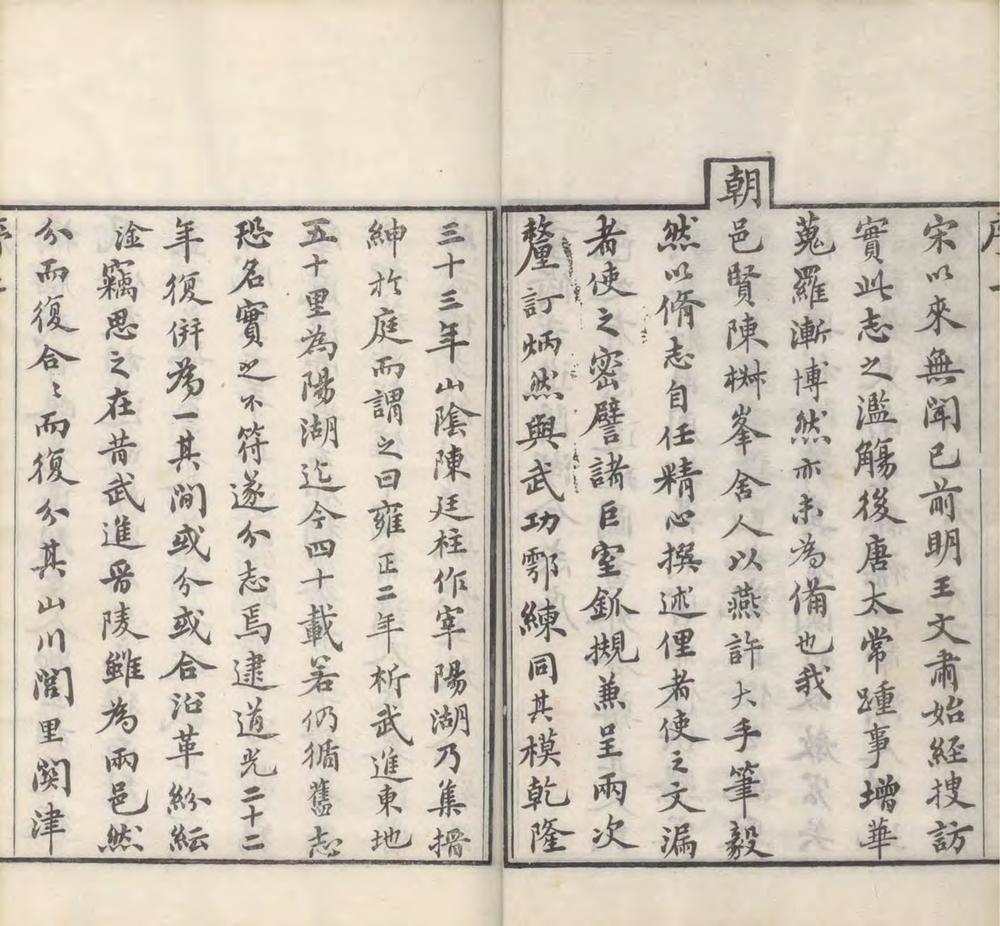 宋以來無聞已前明王文肅始經搜訪
實此志之濫觴後唐太常踵事增華
蒐羅漸博然亦未為備也我
朝
邑賢陳楙峯舍人以燕許大手筆毅
然以脩志自任精心撰述俚者使之文漏
者使之密譬諸巨室釽摫兼呈兩次
釐訂炳然與武功鄠練同其模乾隆
三十三年山陰陳廷柱作宰陽湖乃集搢
紳於庭而謂之曰雍正二年析武進東地
五十里為陽湖迄今四十載若仍循舊志
恐名實之不符遂分志焉逮道光二十二
年復併為一其間或分或合沿革紛紜
淦竊思之在昔武進晉陵雖為兩邑然
分而復合〻而復分其山川閭里関津